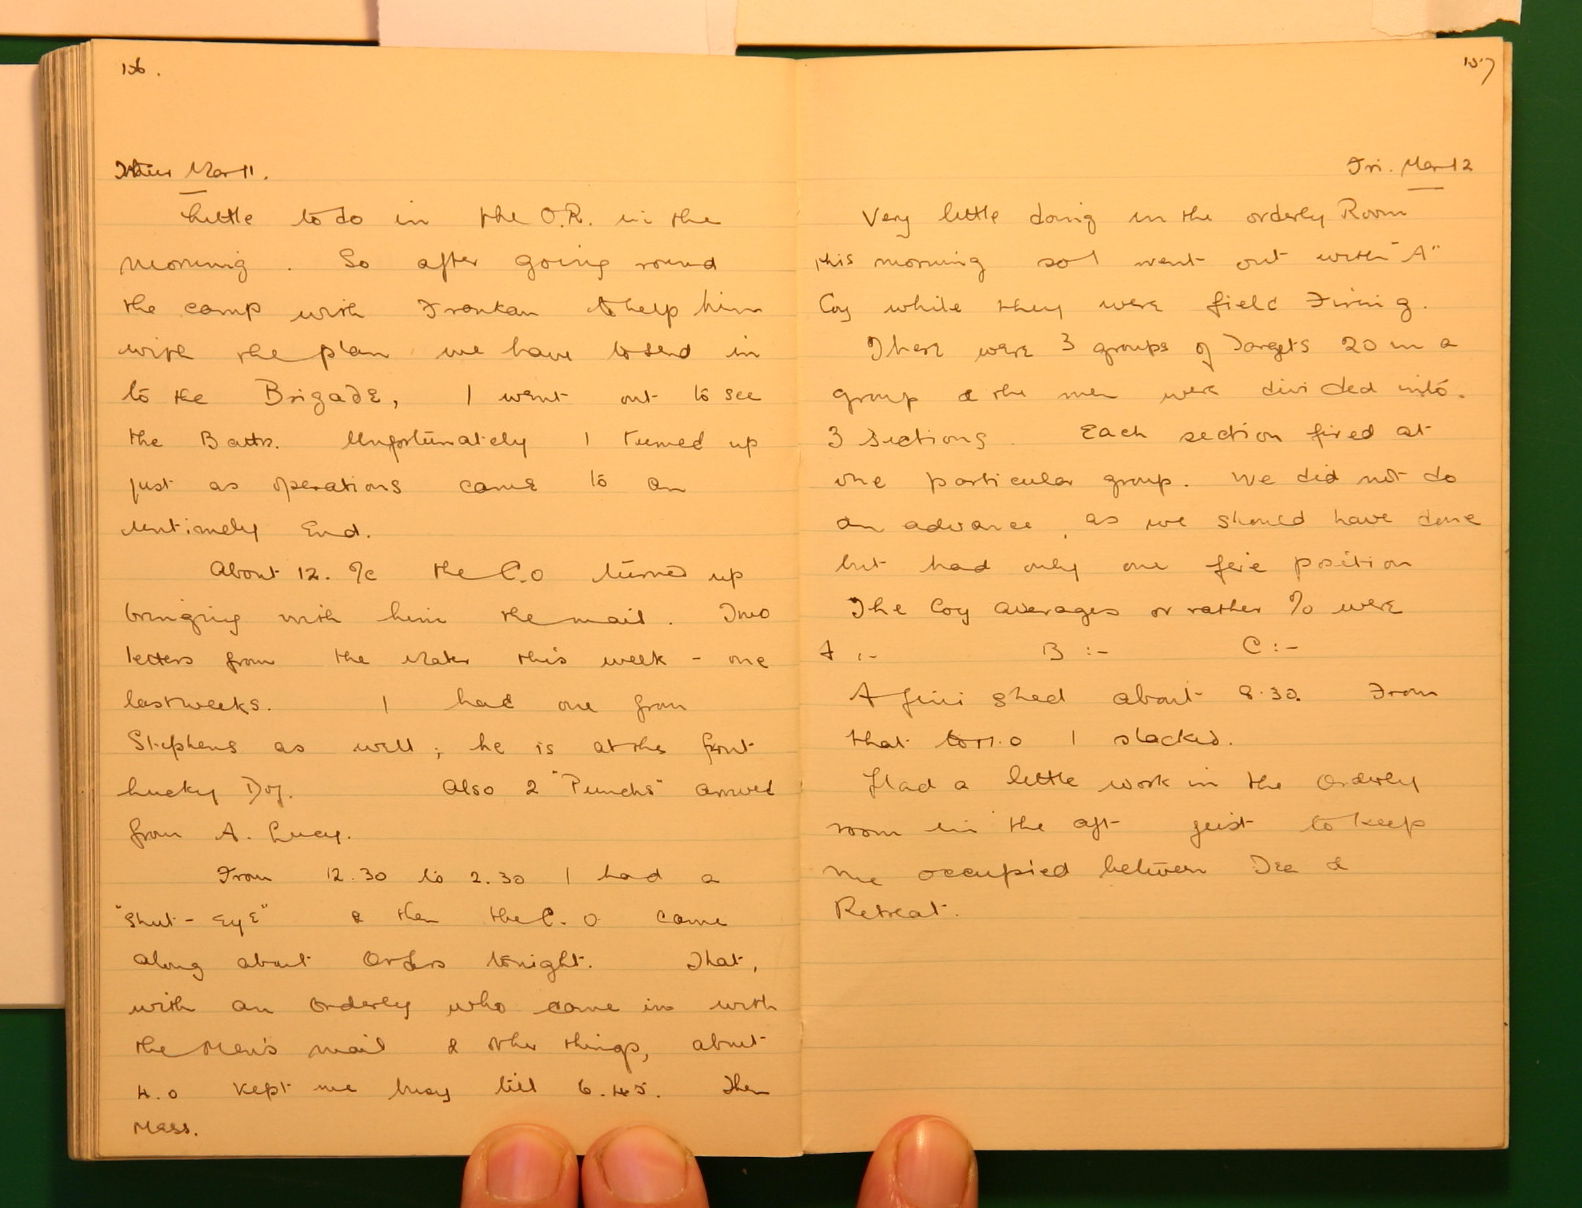 156.
Thurs Mar 11.
Little to do in the O.R. in the
morning. So after going round
the camp with Frankau to help him
with the plan we have to send in
to the Brigade, I went out to see
the Battn. Unfortunately I turned up
just as operations came to an
untimely End.
About 12. the C.O turned up
bringing with him the mail. Two
letters from the Mater this week - one
last weeks. I had one from
Stephens as well; he is at the front
Lucky Dog. Also 2 "Punchs" arrived
from A. Lucy.
From 12.30 to 2.30 I had a
"Shut-EyE" & then the C.O came
along about Orders tonight. That,
with an Orderly who came in with
the Men's mail & other things, about
4.0 kept me busy till 6.45. Then
Mess.
157
Fri. Mar 12
Very little doing in the orderly Room
this morning so I went out with "A"
Coy while they were field Firing.
There were 3 groups of Targets 20 in a
group & the men were divided into.
3 sections. Each section fired at
one particular group. We did not do
an advance, as we should have done
but had only one fire position
The Coy averages or rather % were
A :- B :- C :-
A finished about 8.30. From
that to 11.0 I slacked.
Had a little work in the Orderly
room in the aft just to keep
me occupied between Tea &
Retreat.